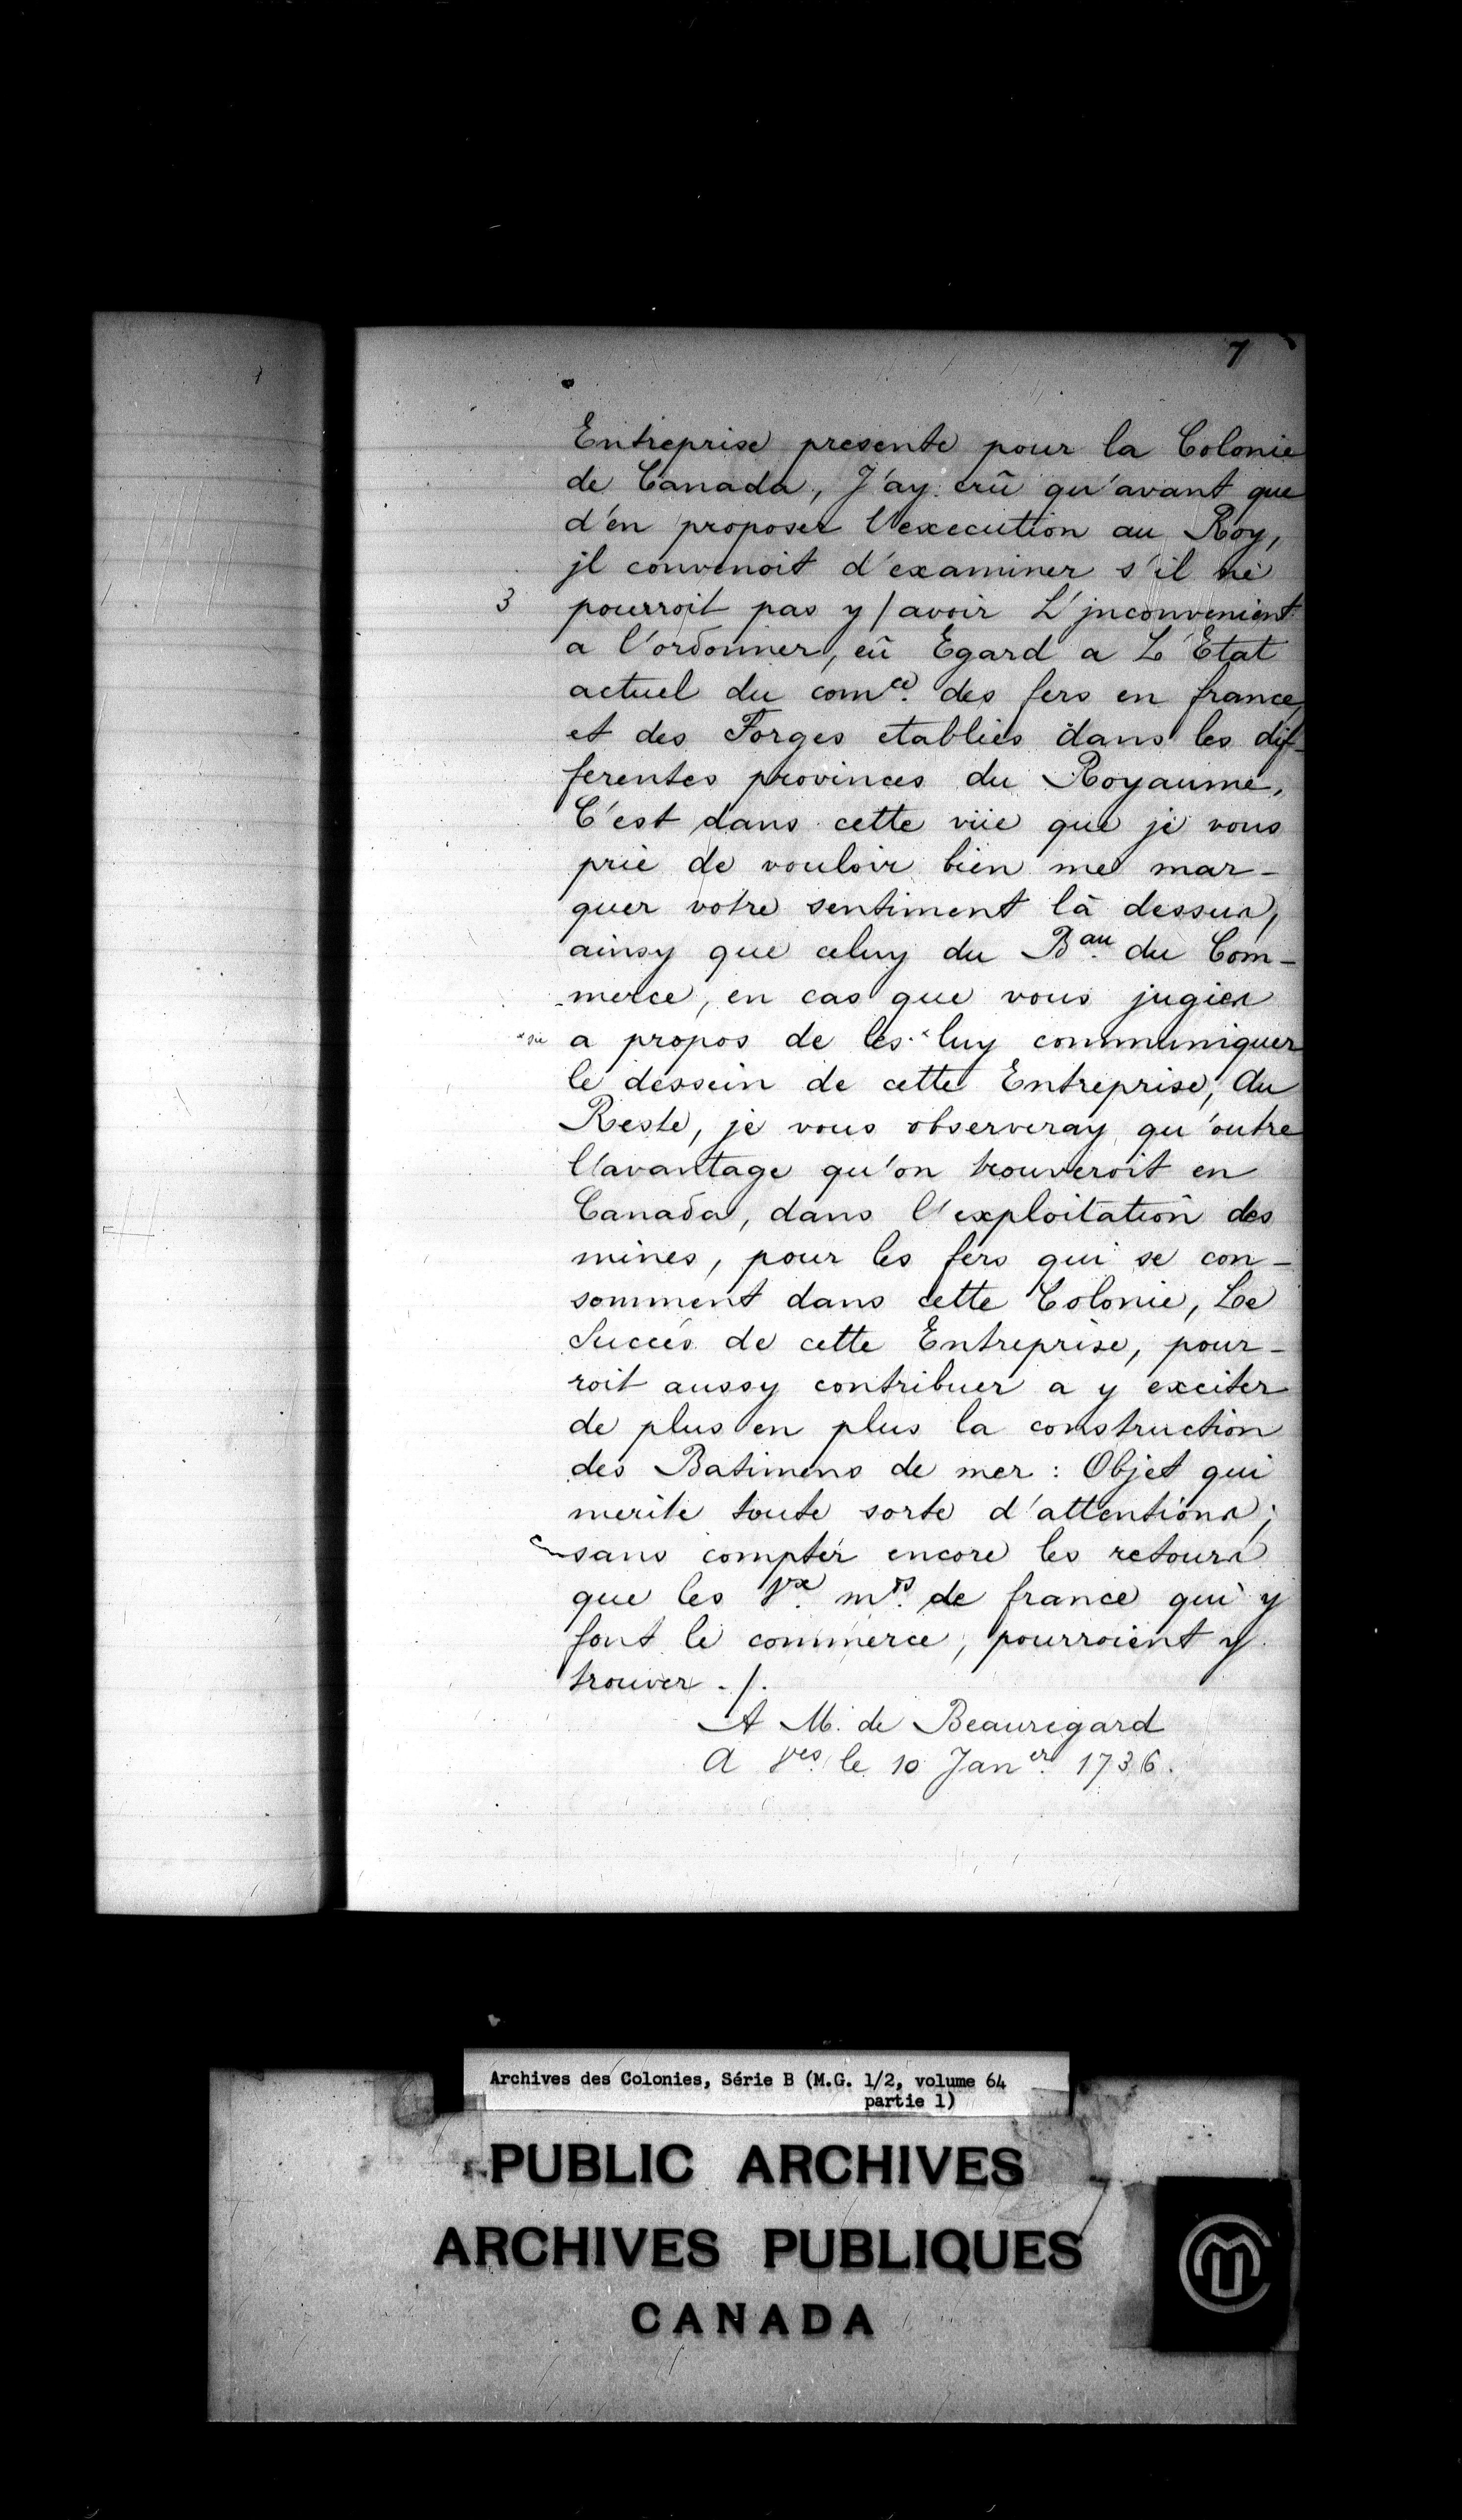 7
Entreprise presente pour la Colonie
de Canada, J'ay crû qu'avant que
d'en proposer l'execution au Roy,
jl convenoit d'examiner s'il ne
3 pourroit pas y / avoir L'jnconvenient
a l'ordonner, eû Egard a L'Etat
actuel du com.ce des fers en france,
et des Forges etablies dans les dif-
ferentes provinces du Royaume.
C'est dans cette vüe que je vous
prie de vouloir bien me mar-
quer votre sentiment là dessus,
ainsy que celuy du B.au du Com-
-merce, en cas que vous jugiez
*sic a propos de les * luy communiquer
le dessein de cette Entreprise, Au
Reste, je vous observeray qu'outre
l'avantage qu'on trouveroit en
Canada, dans l'exploitation des
mines, pour les fers qui se con-
somment dans cette Colonie, Le
Succès de cette Entreprise, pour-
roit aussy contribuer a y exciter
de plus en plus la construction
des Batimens de mer : Objet qui
merite toute sorte d'attentions ;
sans compter encore les retours
que les V.x m.ds de france qui y
font le commerce, pourroient y
trouver ./.
A M. de Beauregard
A V.es le 10 Jan.er 1736.
Archives des Colonies, Série B (M.G. 1/2, volume 64
partie 1)
PUBLIC ARCHIVES
ARCHIVES PUBLIQUES
CANADA